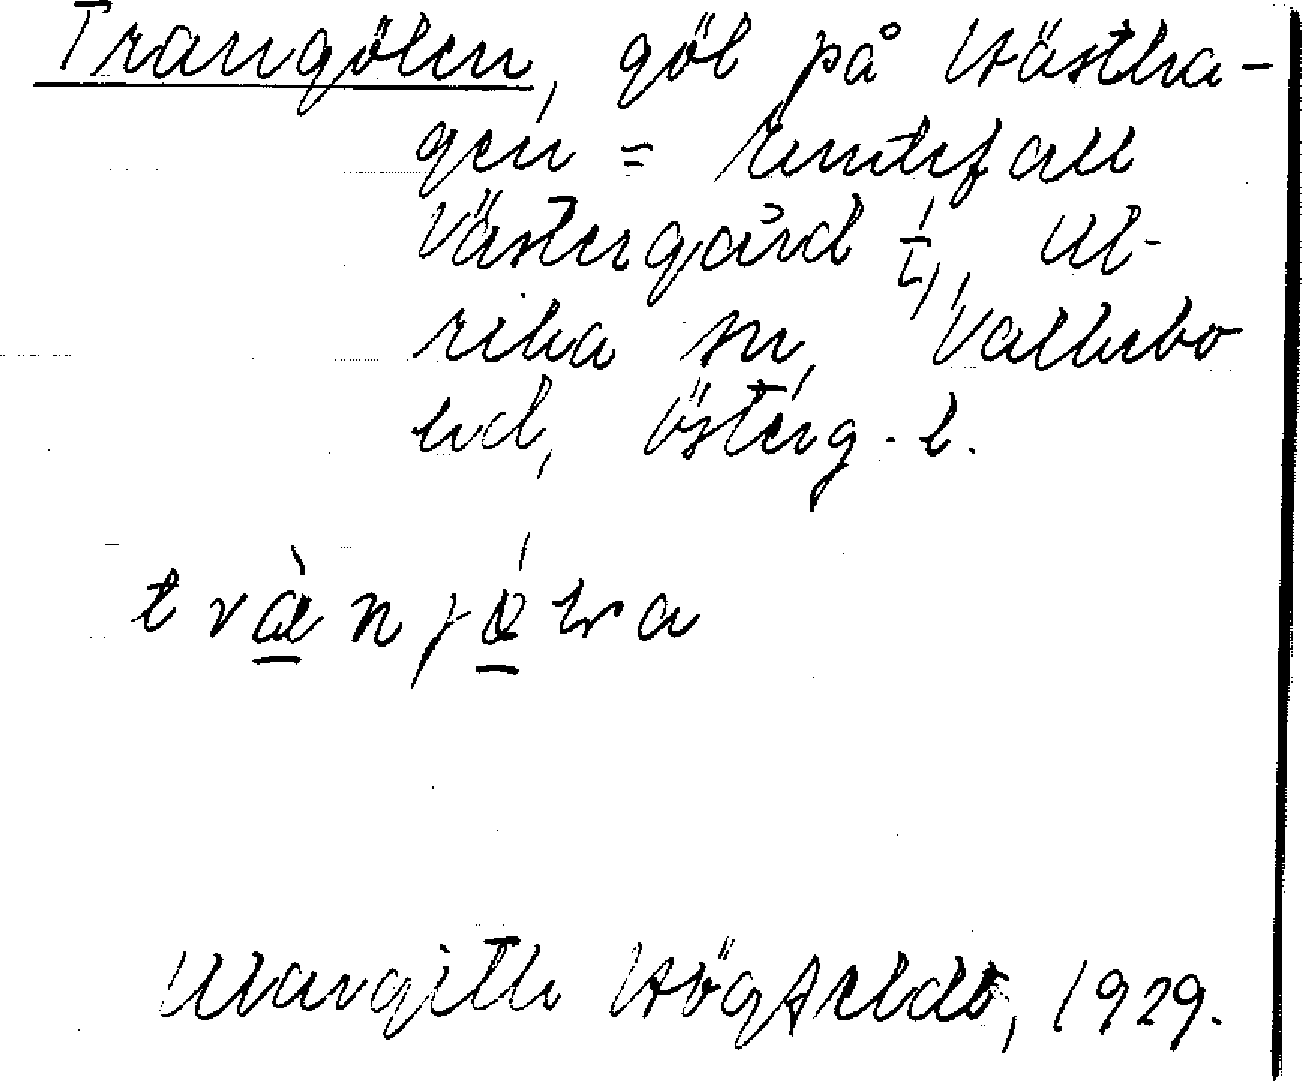 Trangölen, göl på Hästha-
gen = Rumtefall
Västergård 1/1, Ul-
rika sn, Vallebo
hd, Österg. l.
trànjö́lra
Margith Högfeldt, 1929.